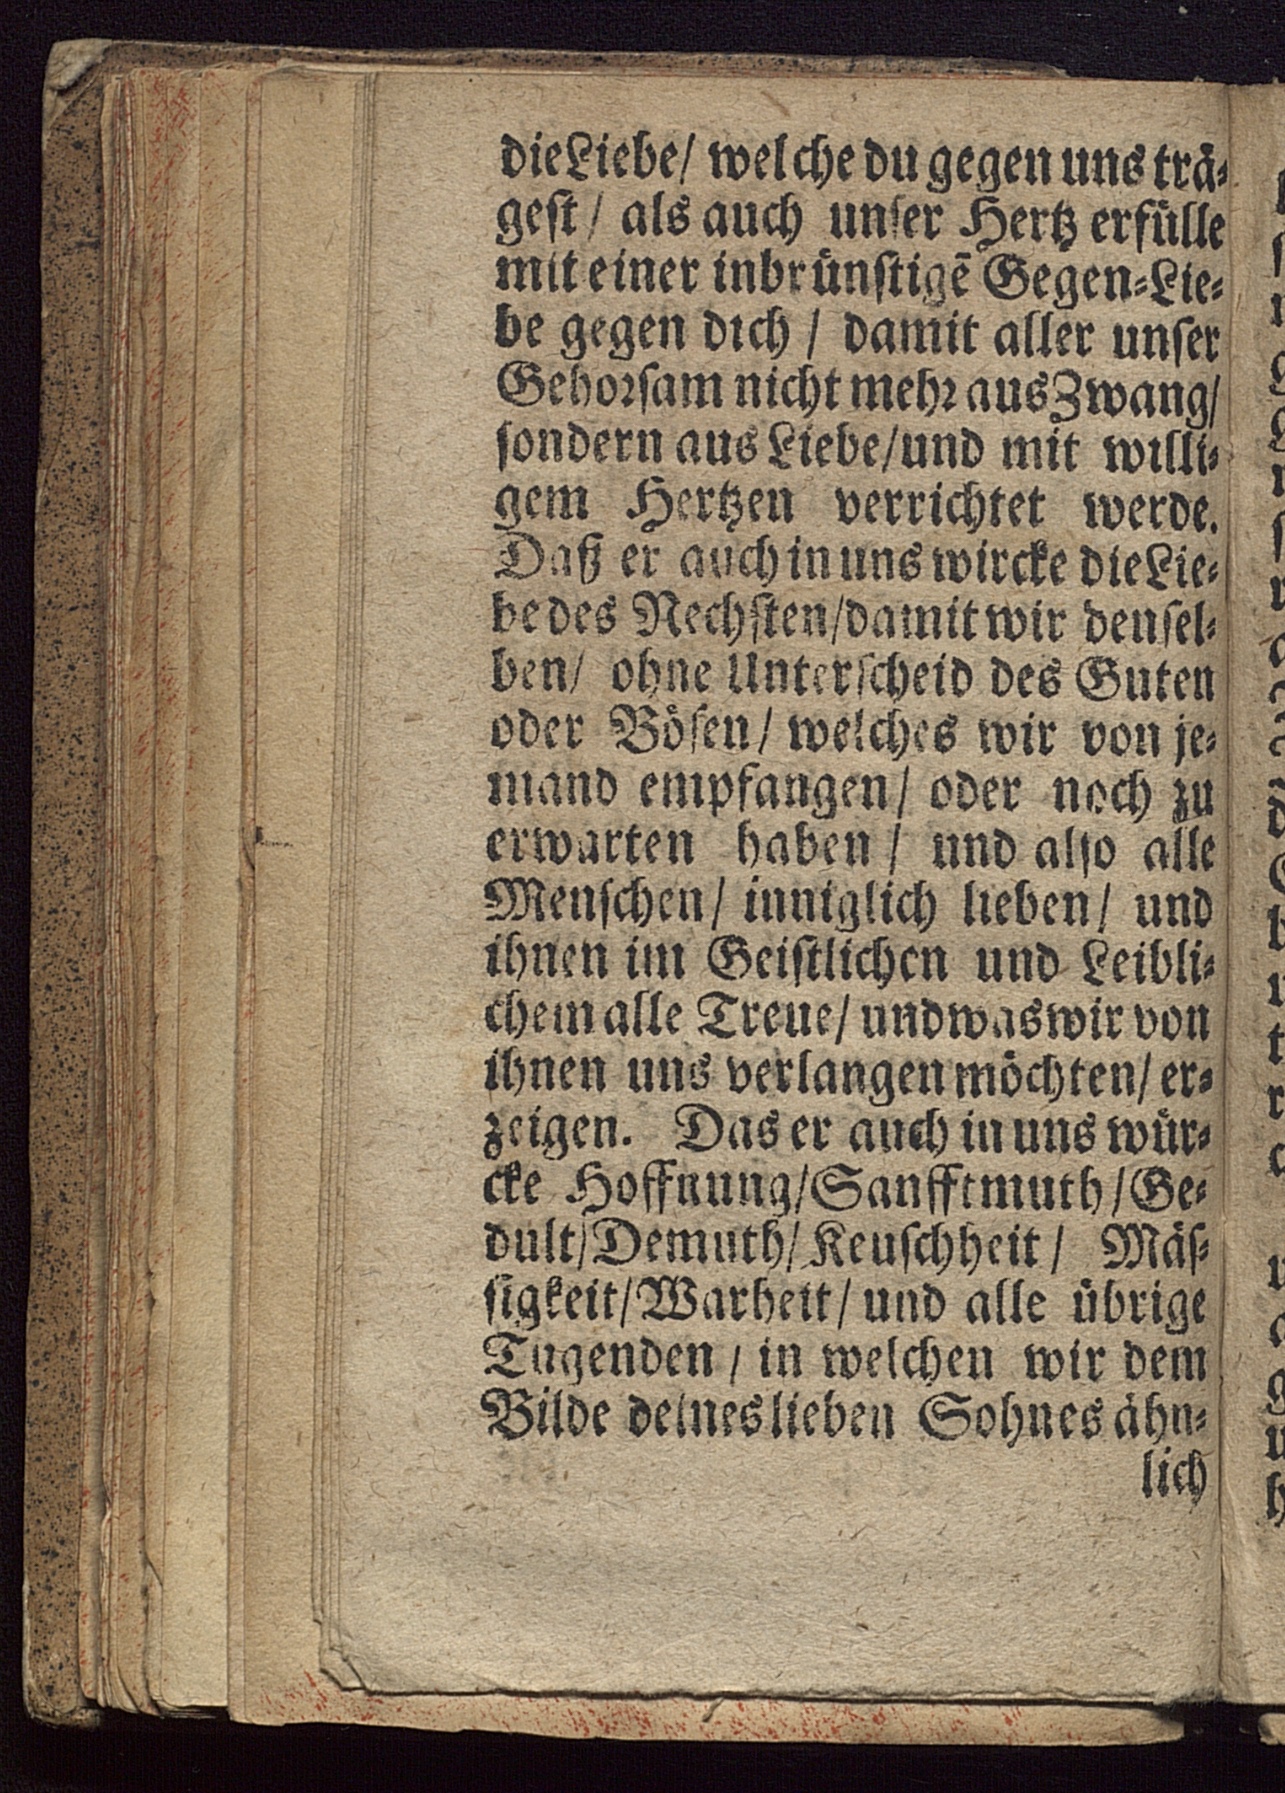 die Liebe/ welche du gegen uns trä⸗
geſt / als auch unſer Hertz erfülle
mit einer inbrünſtigē Gegen⸗Lie⸗
be gegen dich / damit aller unſer
Gehorſam nicht mehr aus Zwang/
ſondern aus Liebe/und mit willi⸗
gem Hertzen verrichtet werde.
Daß er auch in uns wircke die Lie⸗
be des Nechſten/damit wir denſel⸗
ben/ ohne Unterſcheid des Guten
oder Böſen / welches wir von je⸗
mand empfangen / oder noch zu
erwarten haben / und alſo alle
Menſchen/ inniglich lieben/ und
ihnen im Geiſtlichen und Leibli⸗
chem alle Treue/ und was wir von
ihnen uns verlangen möchten/ er⸗
zeigen. Das er auch in uns wür⸗
cke Hoffnung/Sanfftmuth/Ge⸗
dult/Demuth/Keuſchheit / Mäſ⸗
ſigkeit/Warheit/ und alle übrige
Tugenden / in welchen wir dem
Bilde deines lieben Sohnes ähn⸗
lich